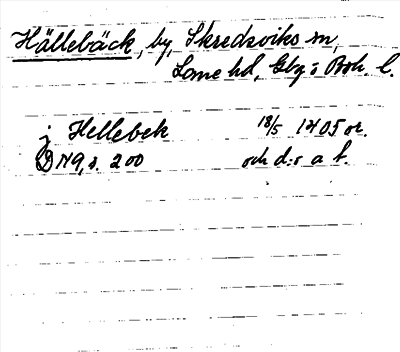 Hällebäck, by, Skredsviks sn,
Lane hd, Gbg: o Boh. l.
j Hellebek 18/5 1405 or.
N9, s. 200 och d:o a f.